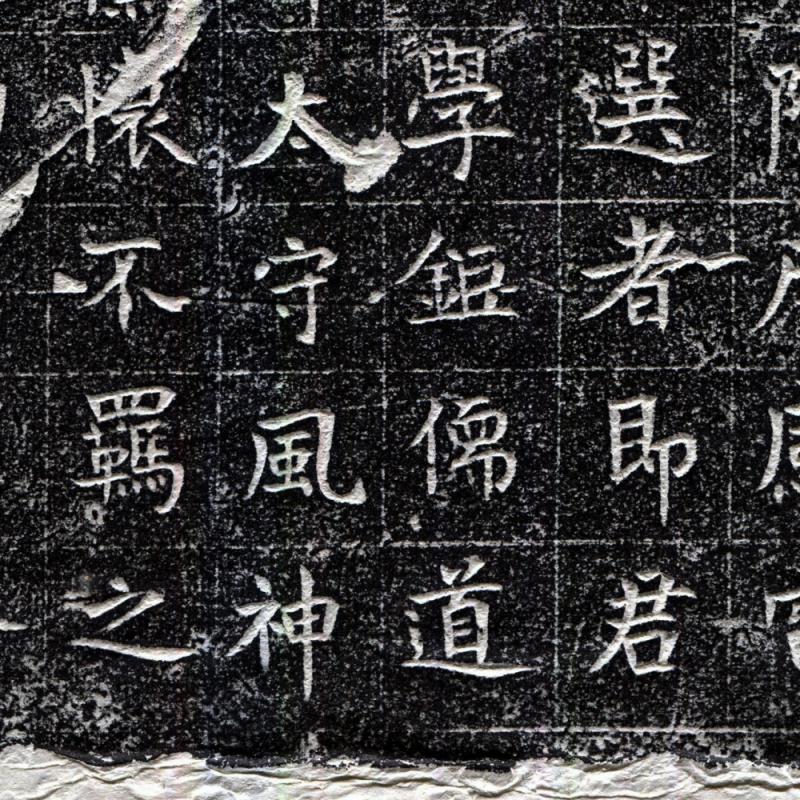 選者即君
學鉅儒道
太守風神
懷不羈之